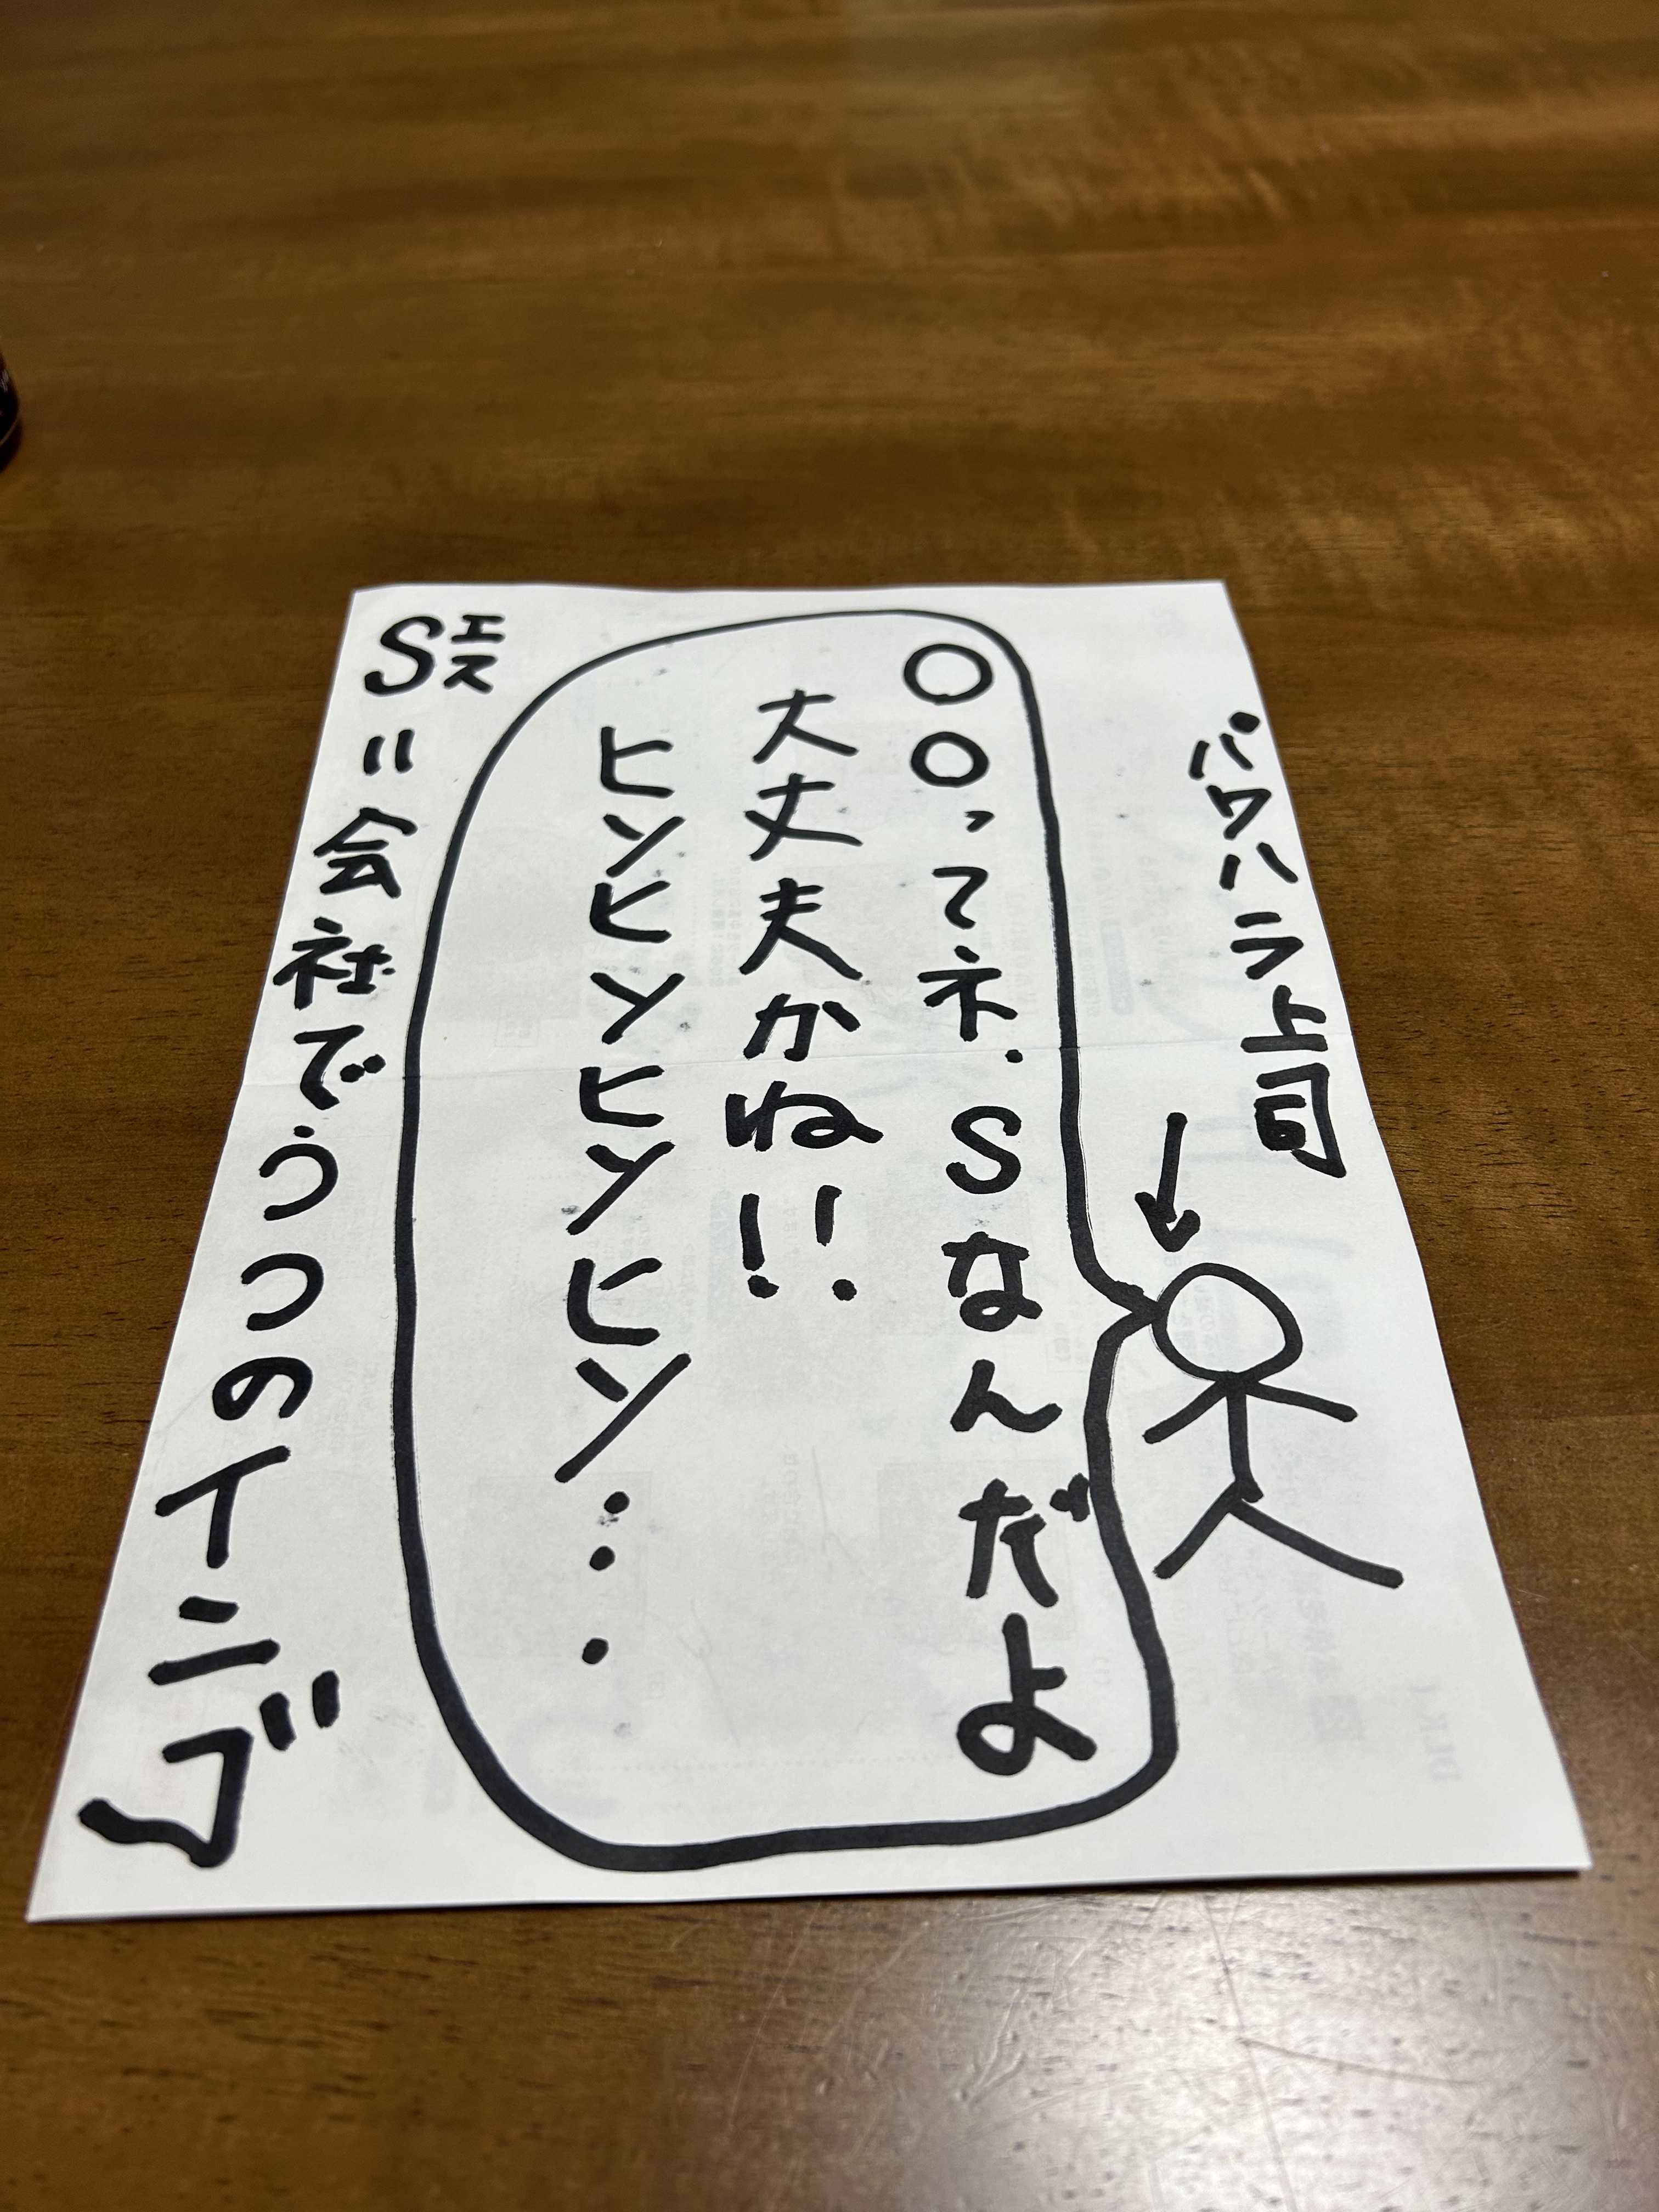 パワハラ上司
↓
〇〇ってネ.Sなんだよ
大丈夫かね!!
ヒンヒンヒンヒン....
Sエス=会社でうつのインゴ